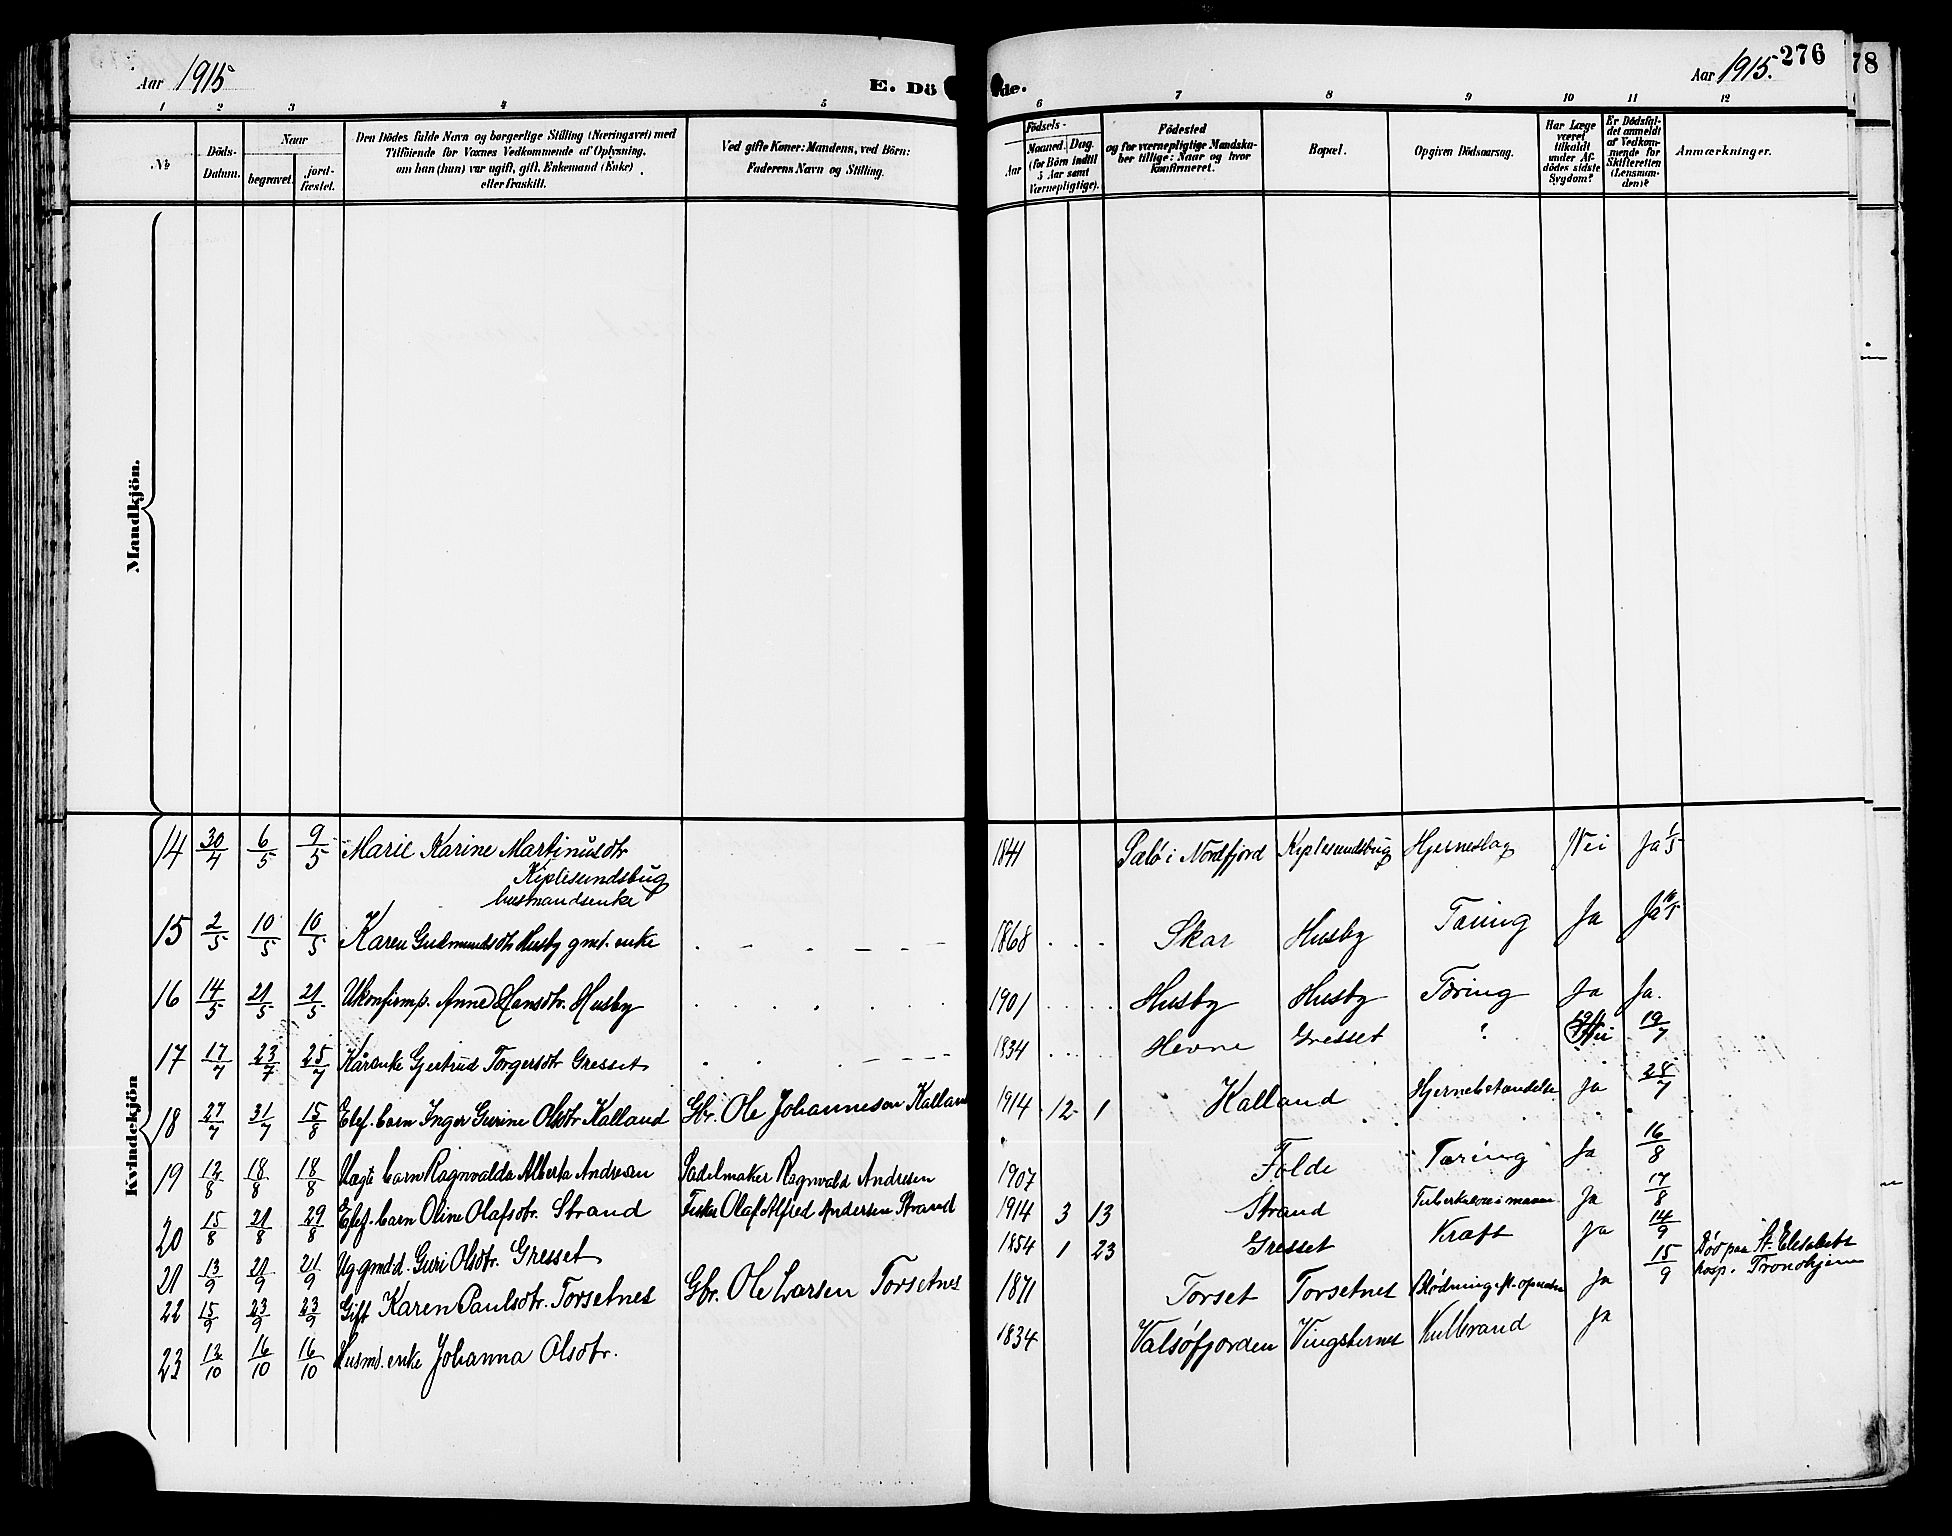 Aar 1915
E. Dö
de.
Aar 1915.
276
78
1 2 3 4 5 6 7 8 9 10 11 12
№
Döds-
Datum.
Naar
begravet.
jord-
fæstet.
Den Dödes fulde Navn og borgerlige Stilling (Næringsvei) med
Tilföiende for Voxnes Vedkommende af Oplysning,
om han (hun) var ugift, gift, Enkemand (Enke)
eller fraskilt.
Ved gifte Koner: Mandens, ved Börn:
Faderens Navn og Stilling.
Födsels-
Aar
Maaned. Dag.
(for Börn indtil
5 Aar samt
Værnepligtige).
Födested
og for værnepligtige Mandska-
ber tillige: Naar og hvor
konfirmeret.
Bopæl.
Opgiven Dödsaarsag.
Har Læge
været
tilkaldt
under Af-
dödes sidste
Sygdom?
Er Dödsfal-
det anmeldt
af Vedkom-
mende for
Skifteretten
(Lensman-
den)?
Anmærkninger.
Mandkjön.
Kvindekjön
14 30/4 6/5 9/5 Marie Karine Martinusdtr 1841 Pælö i Nordfjord Kiplesundsbug Hjerneslag Nei Ja 1/5
Kiplesundsbug
husmandsenke
15 2/5 10/5 10/5 Karen Gudmundsdtr Husby gmd. enke 1868 Skar Husby Tæring Ja Ja 10/5
16 14/5 21/5 21/5 Ukonfirmp. Anne Hansdtr. Husby 1901 Husby Husby Tæring Ja Ja.
17 17/7 23/7 25/7 Kårenke Gjertrud Torgersdtr Gresset 1834 Hevne Gresset ? Nei 19/7
18 27/7 31/7 15/8 Elef. barn Inger Gurine Olsdtr Kalland Gbr. Ole Johannesen Kalland 1914 12 1 Kalland Hjernebetændelse Ja 28/7
19 12/8 18/8 18/8 Uægte barn Ragnvalda Alberta Andresen Sadelmaker Ragnvald Andresen 1907 Folde Tæring Ja 16/8
20 15/8 21/8 29/8 Elef. barn Oline Olafsdtr. Strand Fisker Olaf Alfred Andersen Strand 1914 3 13 Strand Tuberkulose i maven Ja 17/8
21 13/9 21/9 21/9 Ug. gmd.d. Guri Olsdtr. Gresset 1854 1 23 Gresset Kræft Ja 14/9
22 15/9 23/9 23/9 Gift Karen Paulsdtr. Torsetnes Gbr. Ole Larsen Torsetnes 1871 Torset Torsetnes Blødning Ja 15/9 Død paa St. Elisabeth
hosp. Trondhjem
23 12/10 16/10 16/10 Husmd. enke Johanna Olsdtr. 1834 Valsöfjorden Vingsternes Kulbrand Ja